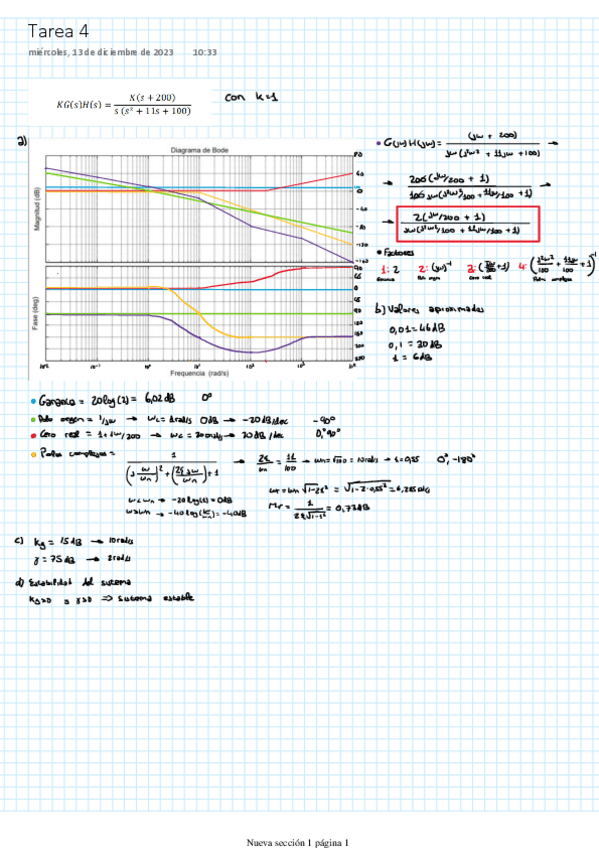 Tarea 4
miércoles, 13 de diciembre de 2023 10:33
KG(s)H(s) = K(s + 200) / s (s² + 11s + 100) con k=1
a)
Diagrama de Bode
Magnitud (dB)
Fase (deg)
Frequencia (rad/s)
• G(jw)H(jw) = (jw + 200) / jw(j²w² + 11jw + 100) →
→ 200(jw/200 + 1) / 100 jw(j²w²/100 + 11jw/100 + 1) →
→ 2(jw/200 + 1) / jw(j²w²/100 + 11jw/100 + 1)
• Factores
1: 2 2: (jw)⁻¹ 3: (jw/200 + 1) 4: (j²w²/100 + 11jw/100 + 1)⁻¹
b) Valores aproximados
0,01 = 46 dB
0,1 = 20 dB
1 = 6 dB
• Ganancia = 20 log(2) = 6,02 dB 0°
• Polo origen = 1/jw → wc = 1 rad/s 0 dB → -20 dB/dec -90°
• Cero real = 1 + jw/200 → wc = 200 rad/s → 20 dB/dec 0°, 90°
• Polos complejos = 1 / (j w/wn)² + (2ξjw/wn) + 1 → 2ξ/wn = 11/100 → wn = √100 = 10 rad/s → ξ = 0,55 0°, -180°
wr = wn √1-2ξ² = √1-2·0,55² = 6,285
w<wn → -20 log(1) = 0 dB
Mr = 1 / 2ξ√1-ξ² = 0,73 dB
w>wn → -40 log = -40 dB
c) Kg = 15 dB → 10 rad/s
γ = 75 dB → 2 rad/s
d) Estabilidad del sistema
Kg>0 y γ>0 ⇒ Sistema estable
Nueva sección 1 página 1